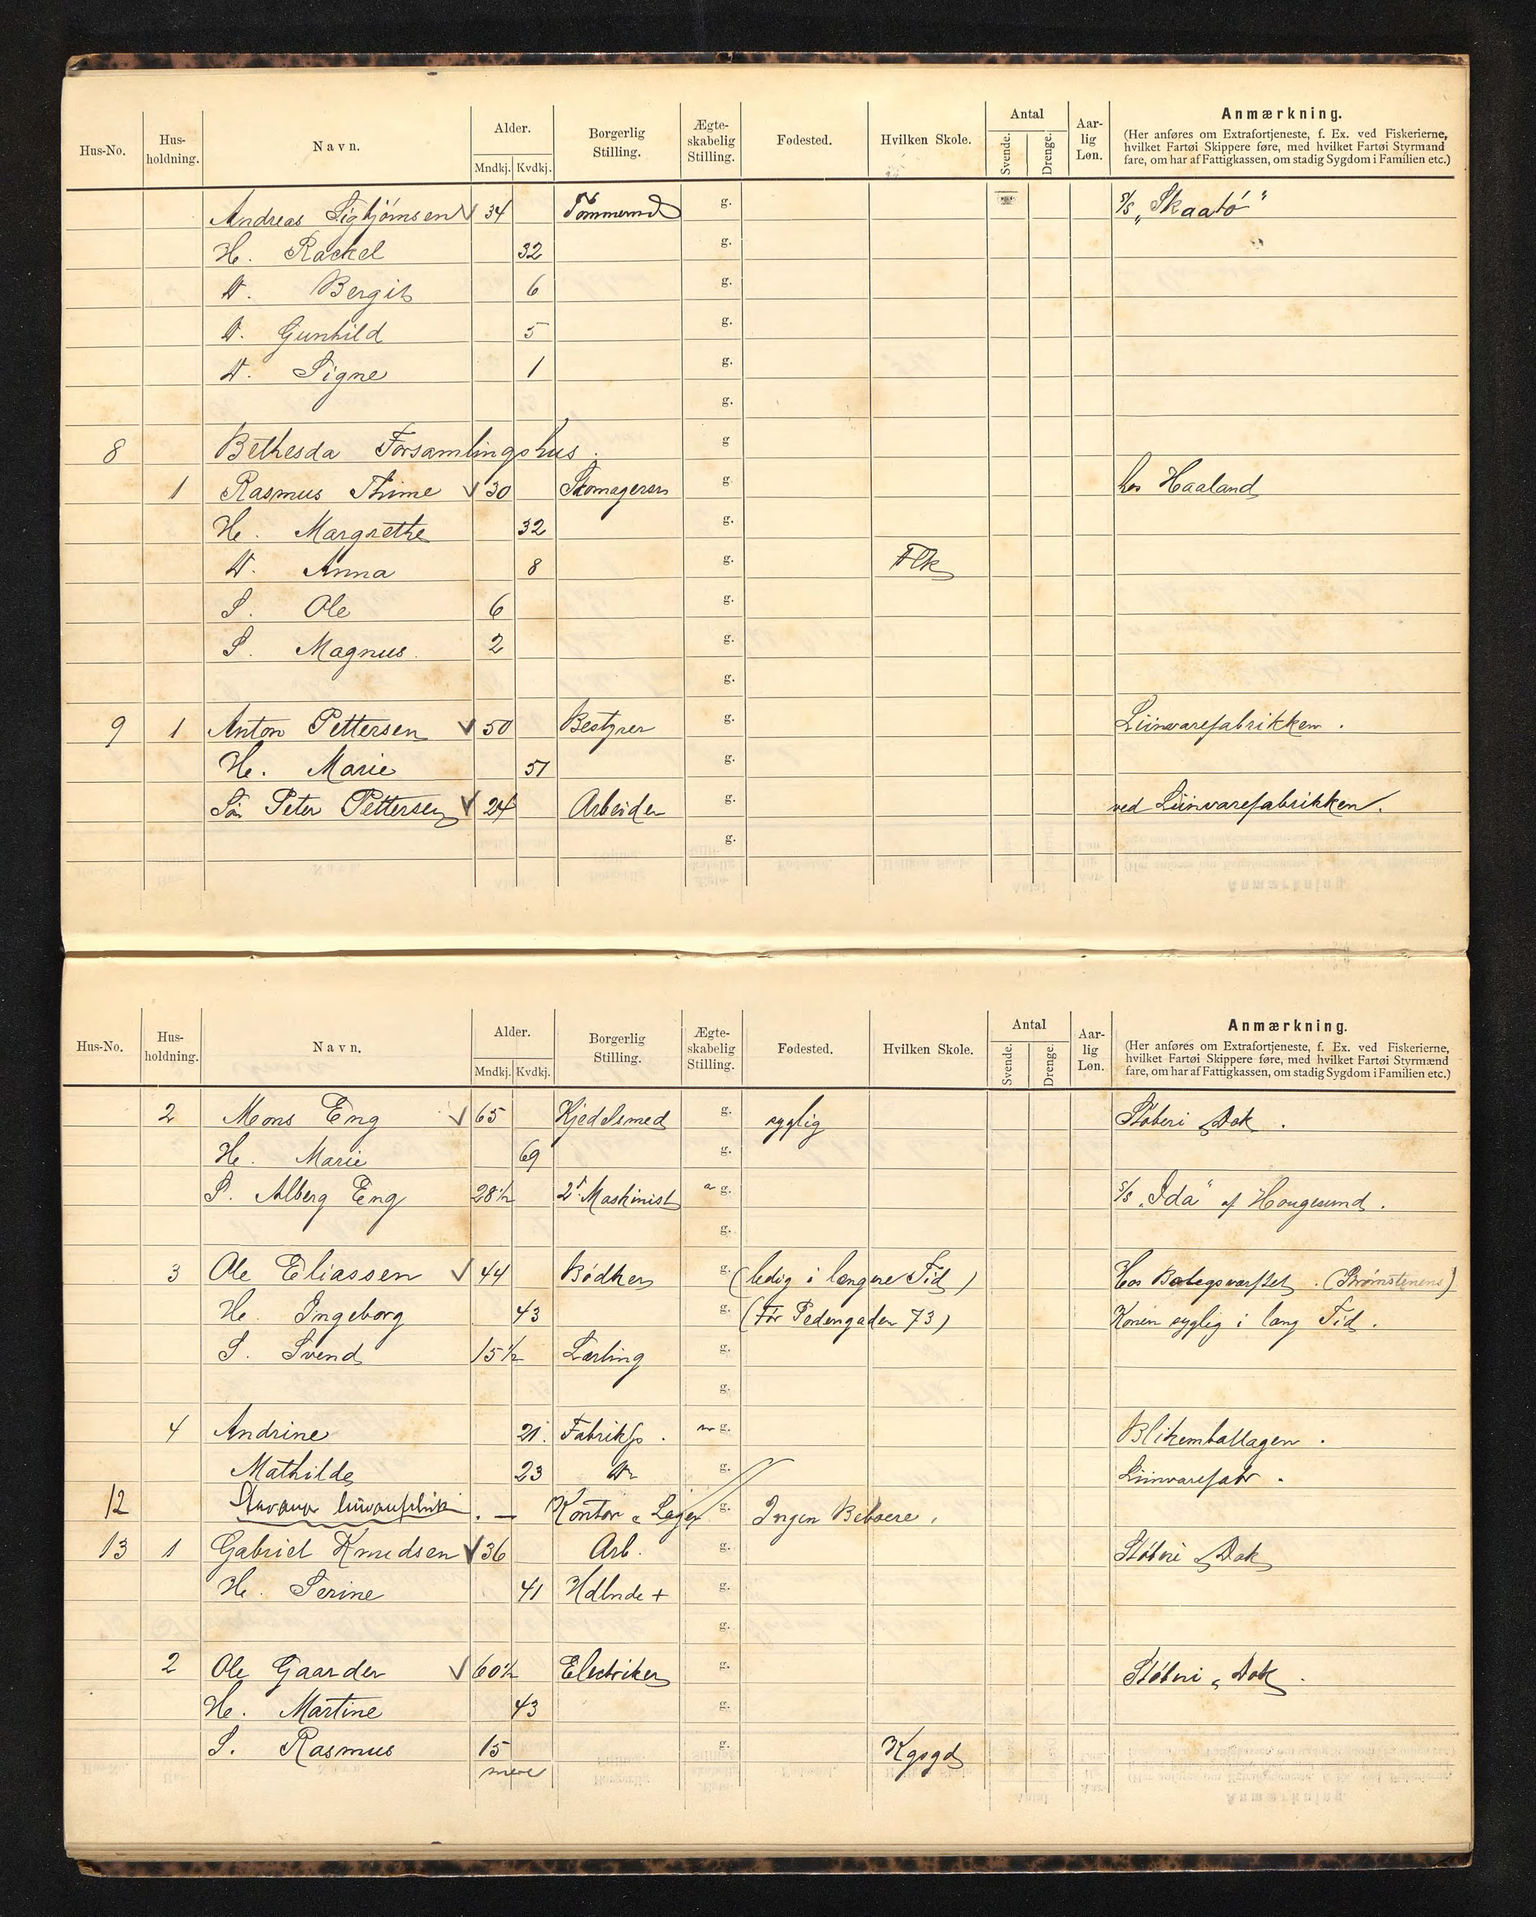 Hus-No. Hus-holdning. Navn. Alder. Mndkj. Kvdkj. Borgerlig Stilling. Ægte-skabelig Stilling. Fødested. Hvilken Skole. Antal Svende. Drenge. Aar-lig Løn. Anmærkning.
(Her anføres om Extrafortjeneste, f. Ex. ved Fiskerierne,
hvilket Fartøi Skippere føre, med hvilket Fartøi Styrmænd
fare, om har af Fattigkassen, om stadig Sygdom i Familien etc.)
Andreas Sigbjörnsen 34 Tömmermd g. S/S „Skaatö"
H. Rackel 32 g.
D. Bergit 6 g.
D. Gunhild 5 g.
D. Signe 1 g.
g.
8 Bethesda Forsamlingshus. g
1 Rasmus Thime 30 Skomagersv g hos Haaland
H. Margrethe 32 g.
D. Anna 8 g. Flk
S. Ole 6 g.
S. Magnus. 2 g.
g.
9 1 Anton Pettersen 50 Bestyrer g. Liinvarefabrikken.
H. Marie 51 g.
Sön Peter Pettersen 24 Arbeider g. ved Liinvarefabrikken.
g.
Hus-No. Hus-holdning. Navn. Alder. Mndkj. Kvdkj. Borgerlig Stilling. Ægte-skabelig Stilling. Fødested. Hvilken Skole. Antal Svende. Drenge. Aar-lig Løn. Anmærkning.
(Her anføres om Extrafortjeneste, f. Ex. ved Fiskerierne,
hvilket Fartøi Skippere føre, med hvilket Fartøi Styrmænd
fare, om har af Fattigkassen, om stadig Sygdom i Familien etc.)
2 Mons Eng 65 Kjedelsmed g. syglig Støberi & Dok.
H. Marie 69 g.
S. Alberg Eng 28½ 2' Maskinist g. S/S „Ida" af Haugesund.
g.
3 Ole Eliassen 44 Bödker g. (ledig i længere Tid) Hos
H. Ingeborg 43 g. (Før Pedersgaden 73) Konen syglig i lang Tid.
S. Svend 15½ Lærling g.
g.
4 Andrine 21. Fabrikp. g. Blikemballagen.
Mathilde 23 Do g. Liinvarefabr.
12 Stavanger . — Kontor & Lager g. Ingen Beboere.
13 1 Gabriel Knudsen 36 Arb. g. Støberi & Dok
H. Serine 41 Hdlnde + g.
g.
2 Ole Gaarder 60½ Electriker g. Støberi & Dok.
H. Martine 43 g.
S. Rasmus 15 g. Kgsgd